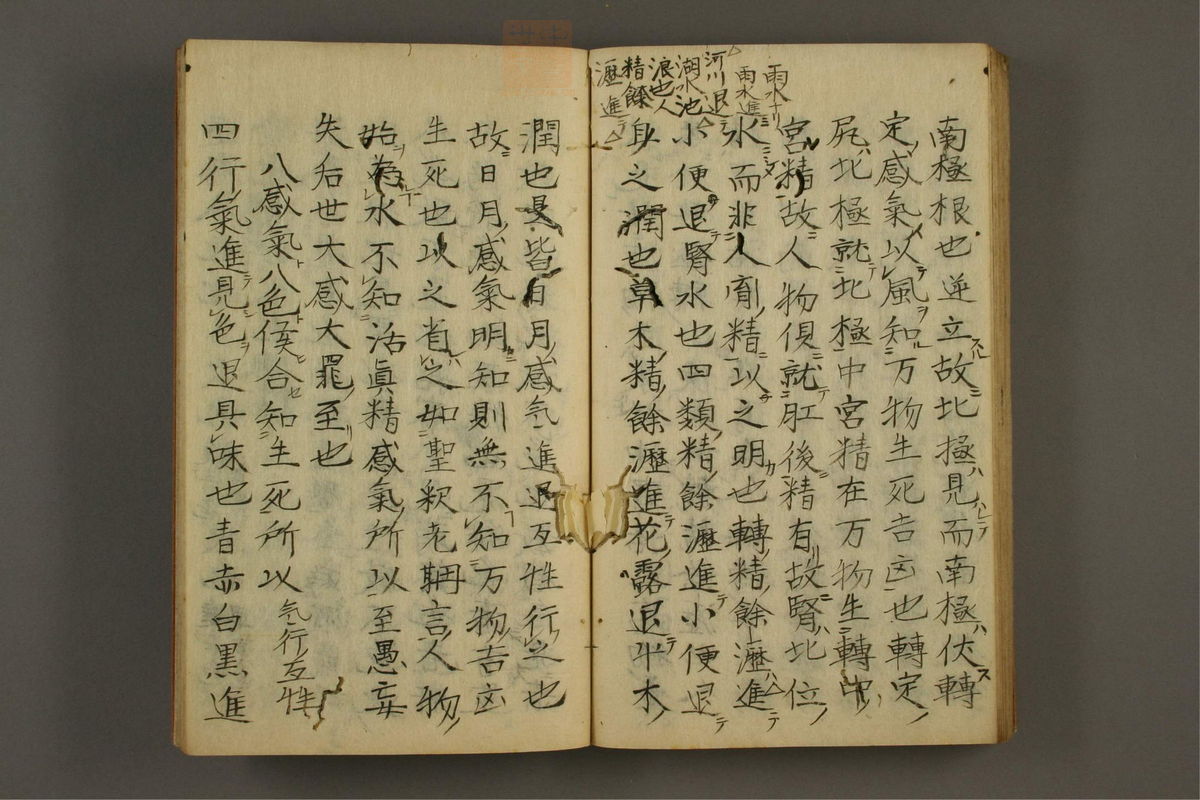 南極根也逆立故北極見而南極伏轉
定感氣以風知万物生死吉凶也轉定
尻北極就北極中宮精在万物生轉中
宮精故人物倶就肛後精有故腎北位
水而非人䐈精以之明也轉精餘瀝進
小便退腎水也四類精餘瀝進小便退
身之潤也草木精餘瀝進花露退艸木
雨水ナリ
雨水進ミ
河川退テ
湖水池
浪也人
精餘
瀝進テ
潤也是皆日月感气進退互性行之也
故日月感氣明知則無不知万物吉凶
生死也以之省之如聖釈老耼言人物
始為水不知活眞精感氣所以至愚妄
失后世大感大罪至也
八感氣八色候合知生死所以气行互性
四行氣進見色退具味也青赤白黒進